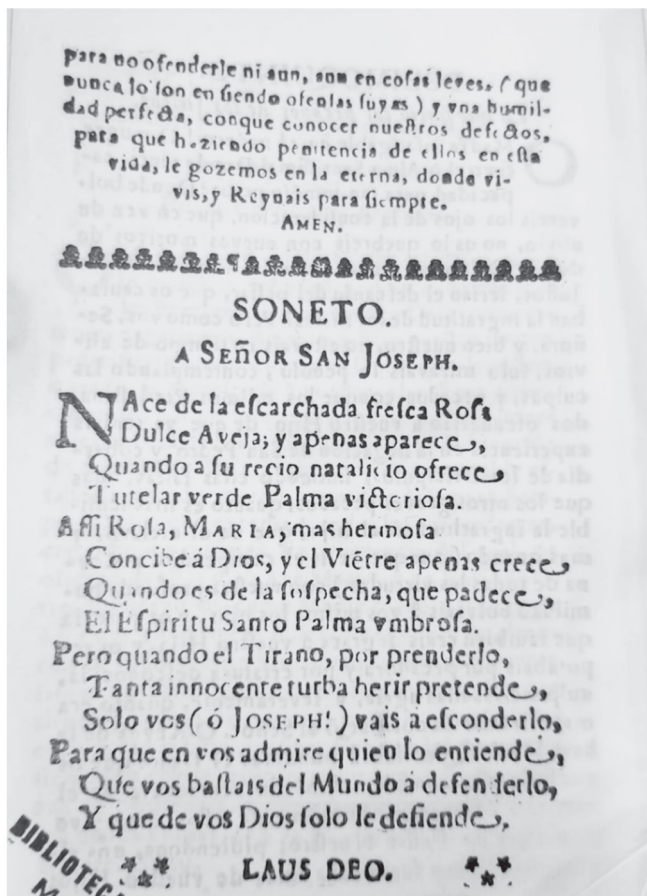 para no ofenderle ni aun, aun en cosas leves. ( que
nunca lo son en siendo ofensas suyas ) y vna humil-
dad perfecta, conque conocer nuestros defectos,
para que haziendo penitencia de ellos en esta
vida, le gozemos en la eterna, donde vi-
vis, y Reynais para siempre.
AMEN.
SONETO.
A SEÑOR SAN JOSEPH.
NAce de la escarchada fresca Rosa
Dulce Aveja; y apenas aparece,
Quando a su recio natalicio ofrece,
Tutelar verde Palma victoriosa.
Assi Rosa, MARIA, mas hermosa.
Concibe á Dios, y el Viẽtre apenas crece,
Quando es de la sospecha, que padece,
El Espiritu Santo Palma vmbrosa.
Pero quando el Tirano, por prenderlo,
Tanta innocente turba herir pretende,
Solo vos ( o JOSEPH! ) vais a esconderlo,
Para que en vos admire quien lo entiende,
Que vos bastais del Mundo à defenderlo,
Y que de vos Dios solo le defiende.
LAUS DEO.
BIBLIOTEC